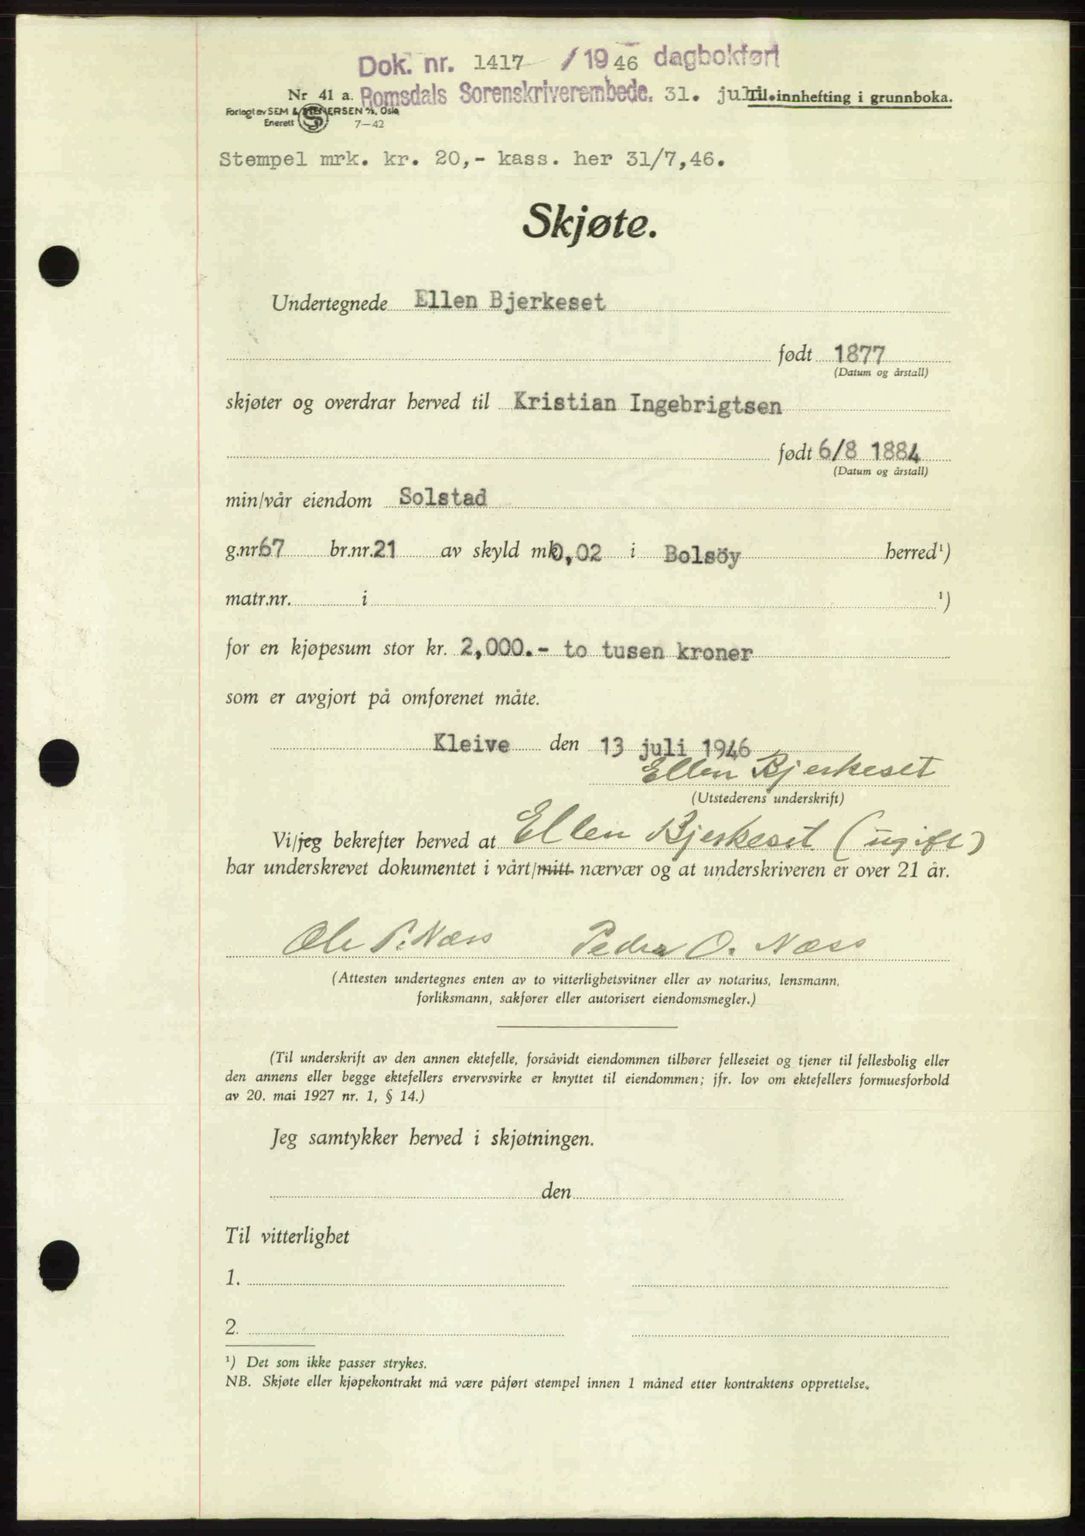 Dok. nr. 1417 / 1946 dagbokført
Nr 41 a. Romsdals Sorenskriverembede. 31. juli. Til innhefting i grunnboka.
Forlagt av SEM & STENERSEN A/S, Oslo
Enerett 7-42
Stempel mrk. kr. 20,- kass. her 31/7,46.
Skjøte.
Undertegnede Ellen Bjerkeset
født 1877
(Datum og årstall)
skjøter og overdrar herved til Kristian Ingebrigtsen
født 6/8 1884
(Datum og årstall)
min/vår eiendom Solstad
g.nr. 67 br.nr. 21 av skyld mk. 0,02 i Bolsöy herred¹)
matr.nr. i ¹)
for en kjøpesum stor kr. 2,000.- to tusen kroner
som er avgjort på omforenet måte.
Kleive den 13 juli 1946
Ellen Bjerkeset
(Utstederens underskrift)
Vi/jeg bekrefter herved at Ellen Bjerkeset (ugift)
har underskrevet dokumentet i vårt/mitt nærvær og at underskriveren er over 21 år.
Ole P. Næss Pedra O. Næss
(Attesten undertegnes enten av to vitterlighetsvitner eller av notarius, lensmann,
forliksmann, sakfører eller autorisert eiendomsmegler.)
(Til underskrift av den annen ektefelle, forsåvidt eiendommen tilhører felleseiet og tjener til fellesbolig eller
den annens eller begge ektefellers ervervsvirke er knyttet til eiendommen; jfr. lov om ektefellers formuesforhold
av 20. mai 1927 nr. 1, § 14.)
Jeg samtykker herved i skjøtningen.
den
Til vitterlighet
1.
2.
¹) Det som ikke passer strykes.
NB. Skjøte eller kjøpekontrakt må være påført stempel innen 1 måned etter kontraktens opprettelse.